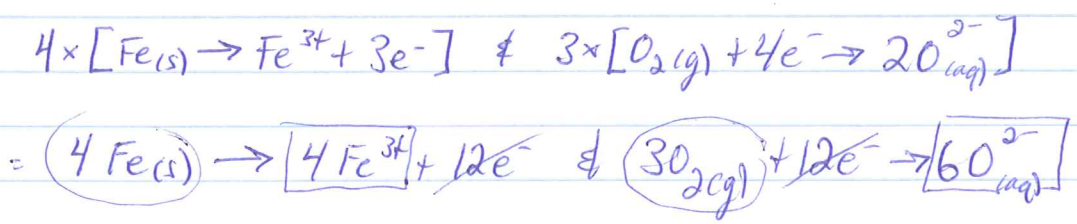 4×[Fe(s) → Fe³⁺ + 3e⁻] & 3×[O₂(g) + 4e⁻ → 2O²⁻(aq)]
= 4 Fe(s) → 4 Fe³⁺ + 12e⁻ & 3O₂(g) + 12e⁻ → 6O²⁻(aq)